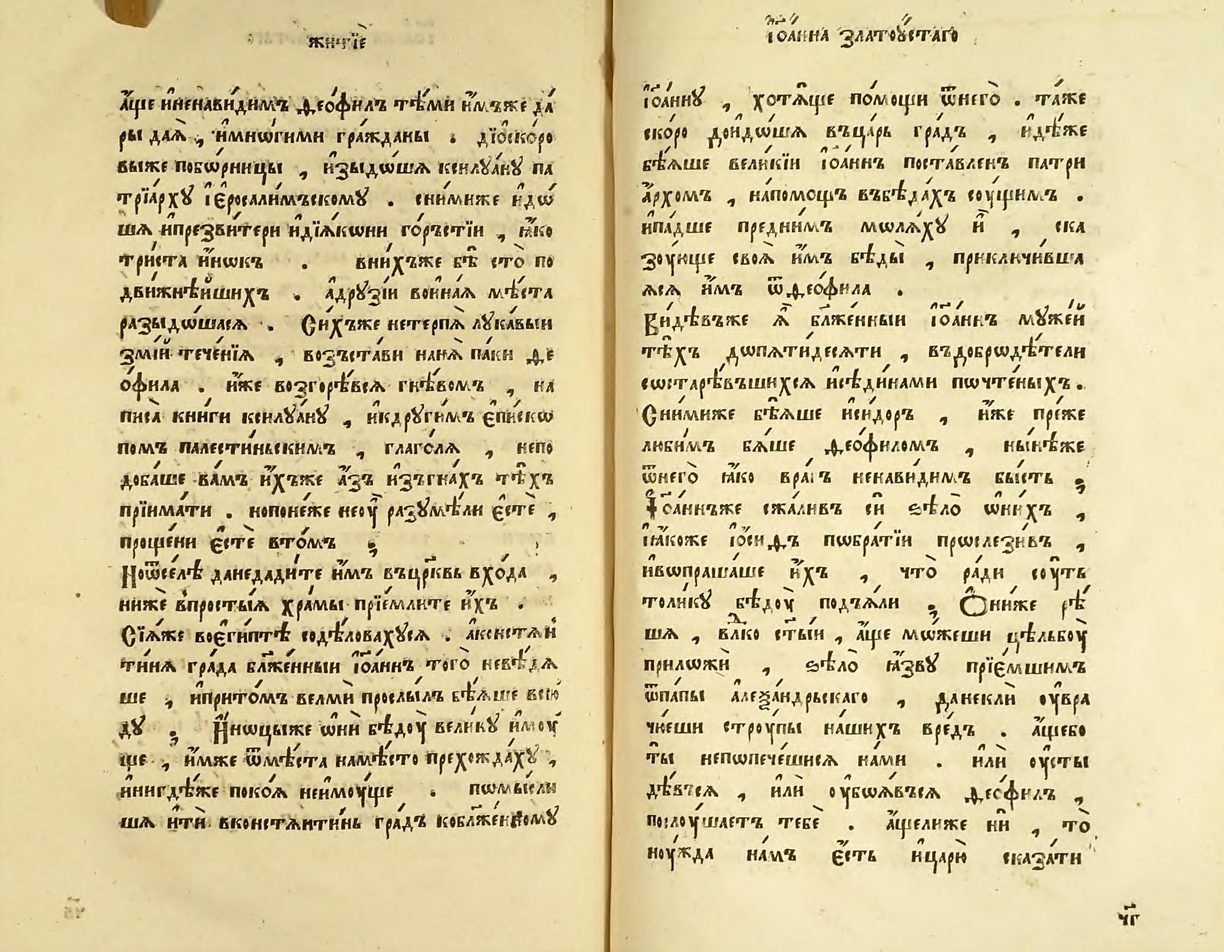 жнтїѐ
а҆́ще и҆ненави́димъ ѳео́фил тѣ́ми и҆́мъже да́
ры даѧ̀ , и҆мнѡ́гими гра́жданы . дїо́скоро
выже побѡ́рницы , и҆зыдѡ́шѧ ксилꙋа́нꙋ па
трїа́рхꙋ і҆єрⷭ҇осалимъскомꙋ . снимиже и҆дѡ
шѧ и҆презви́тери и҆дїѧ́кѡни го́ръстїи , ꙗ҆́ко
три́ста и҆́нѡкъ . вни́хъже бѣ̀ сто̀ по
движнѣ́йшихъ . а҆дрꙋзі́и во и҆наѧ мѣ́ста
разыдѡ́шасѧ . Си́хъже нетерпѧ̀ лꙋка́выи
змі́й тече́нїѧ , возъста́ви наня̀ па́ки ѳе
о́фила . и҆́же возгорѣ́всѧ гнѣ́вомъ , на
писа̀ кни́ги ксилꙋа́нꙋ , и҆кдрꙋги́мъ є҆пи́скѡ
помъ палести́ньскимъ , глаго́лѧ , непо
доба́ше ва́мъ и҆́хъже а҆́зъ и҆зъгна́хъ тѣ́хъ
прїима́ти . нопоне́же неоу҆̀ разꙋмѣ́ли є҆стѐ ,
проще́ни є҆́сте вто́мъ ;
Ноѿсе́лѣ данедади́те и҆́мъ въцрⷪ҇квь вхо́да ,
ниже впросты́ѧ хра́мы прїе́млите и҆́хъ .
Сїѧ́же воє҆ги́птѣ содѣ́ловахꙋсѧ . а҆констѧн
ти́нѧ гра́да бл҃же́нныи і҆ѡа́ннъ того̀ невѣ́дѧ
ше , и҆прито́мъ велмѝ прослы́лъ бѣ́ѧше всю́
дꙋ ; И҆́нѡцыже ѡ҆нѝ бѣ́доу вели́кꙋ и҆моу́
ще , и҆́мже ѿмѣ́ста намѣ́сто прехожда́хꙋ ,
и҆нигдѣ́же поко́ѧ неимоу́ще . пѡмы́сли
шѧ и҆тѝ вконстѧнти́нь гра́дъ кобл҃же́нномꙋ
і҆ѡа́нна златоу́стаго
і҆ѡа́ннꙋ , хотѧ́ще по́мощи ѿнего̀ . та́же
ско́ро дои҆дѡ́шѧ въца́рь гра́дъ , и҆дѣ́же
бѣ́ѧше вели́кїи і҆ѡа́ннъ поста́вленъ патри
а҆́рхомъ , напо́мощь въбѣ́дахъ соу́щимъ .
и҆па́дше пре́дни́мъ молѧ́хꙋ и҆̀ , ска
зоу́юще своѧ̀ и҆́мъ бѣ́ды , приключи́вша
ѧсѧ и҆́мъ ѿѳео́фила .
Ви́дѣвъже ѧ҆̀ бл҃же́нныи і҆ѡа́ннъ мꙋже́й
тѣ́хъ дѡпѧти́десѧти , въдоброде́тели
сѡстарѣ́въшихсѧ и҆сѣди́нами пѡчте́ныхъ .
Сни́миже бѣ́ѧше и҆си́доръ , и҆́же пре́же
люби́мъ бѧ́ше ѳео́филомъ , ны́нѣже
ѿнего̀ ꙗ҆́ко вра́гъ ненави́дим бы́сть ;
І҆ѡа́ннъже сжа́ливъ си ѕѣлѡ̀ ѡ҆ни́хъ ,
ꙗ҆́коже і҆ѡ́сиѳъ пѡбра́тїи прѡслези́въ ,
и҆вѡпраша́ше и҆́хъ , что̀ ра́ди соу́ть
толи́кꙋ бѣ́доу подъѧ́ли ; Ѻ҆ниже рѣ́
шѧ , влⷣко ст҃ы́и , а҆́ще мѡ́жеши цѣльбоу̀
приложѝ , ѕѣлѡ̀ ꙗ҆́звꙋ прїе́мшимъ
ѿпа́пы а҆леѯа́ндрьскаго , данеклѝ оу҆вра
чю́еши строу́пы на́шихъ вре́дъ . а҆́щебо
ты̀ непѡпече́шисѧ на́ми . и҆лѝ оу҆сты
дѣ́всѧ , и҆лѝ оу҆боѧ́всѧ ѳео́филъ ,
послоу́шаетъ тебѐ . а҆́щелиже нѝ , то̀
ноу́жда на́мъ є҆́сть и҆царю̀ сказа́ти
чг҃